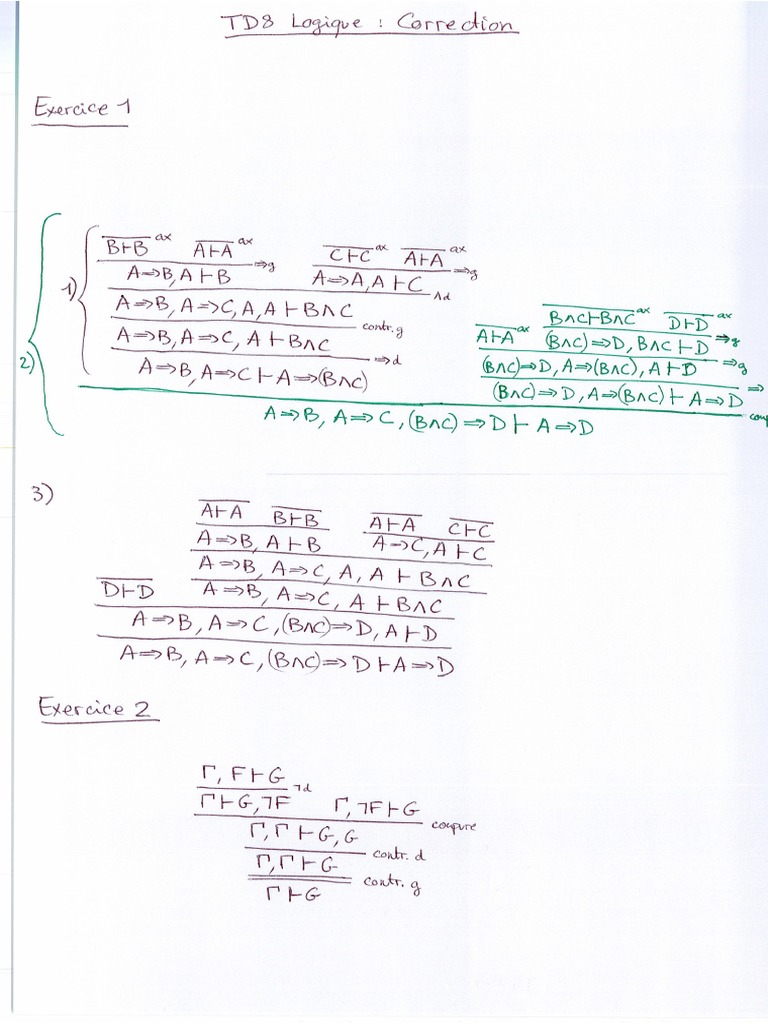 TD8 Logique : Correction
Exercice 1
2)
1)
B⊢B ax A⊢A ax
A⇒B, A⊢B ⇒g
C⊢C ax A⊢A ax
A⇒A, A⊢C ⇒g
∧d
A⇒B, A⇒C, A, A⊢B∧C
contr. g
A⇒B, A⇒C, A⊢B∧C
⇒d
A⇒B, A⇒C ⊢ A⇒(B∧C)
B∧C⊢B∧C ax D⊢D ax
A⊢A ax (B∧C)⇒D, B∧C⊢D ⇒g
(B∧C)⇒D, A⇒(B∧C), A⊢D ⇒g
(B∧C)⇒D, A⇒(B∧C) ⊢ A⇒D ⇒
coup
A⇒B, A⇒C, (B∧C)⇒D ⊢ A⇒D
3)
A⊢A B⊢B A⊢A C⊢C
A⇒B, A⊢B A⇒C, A⊢C
A⇒B, A⇒C, A, A ⊢ B∧C
D⊢D A⇒B, A⇒C, A ⊢ B∧C
A⇒B, A⇒C, (B∧C)⇒D, A⊢D
A⇒B, A⇒C, (B∧C)⇒D ⊢ A⇒D
Exercice 2
Γ, F⊢G
¬d
Γ⊢G, ¬F Γ, ¬F⊢G
coupure
Γ, Γ ⊢ G, G
contr. d
Γ, Γ ⊢ G
contr. g
Γ ⊢ G